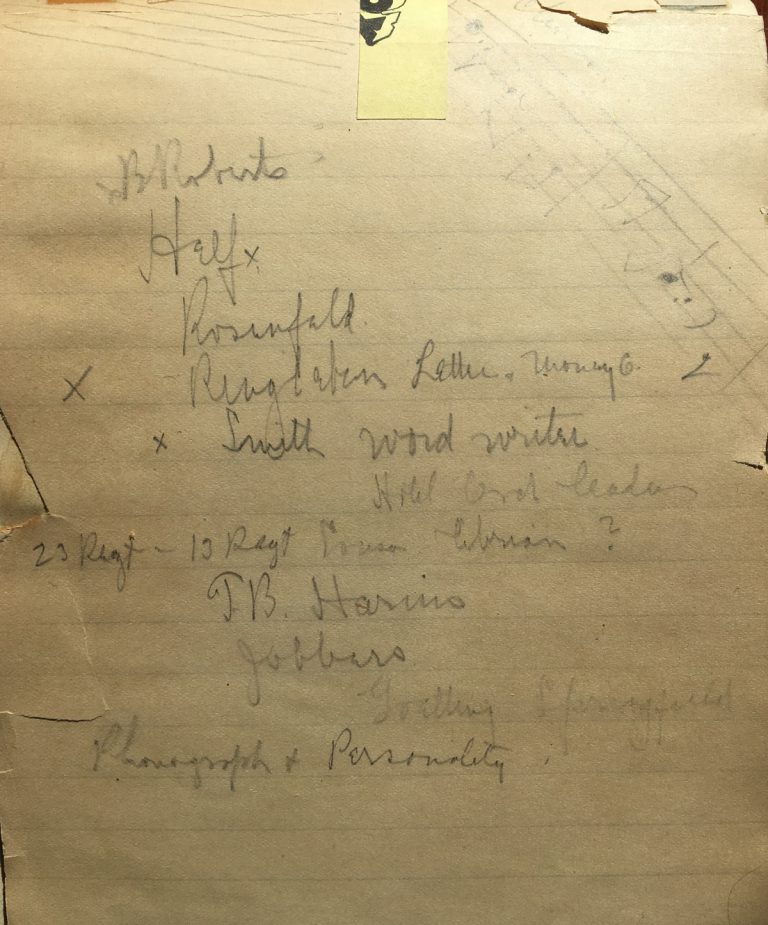 B Roberts
Half x
Rosenfeld.
X Ringleben Letter. Money 6.
x Smith word writer
Hotel Leader
23 Regt - 13 Regt ?
T.B. Harms
Jobbers
Springfield
Phonograph & Personality.